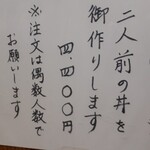 二人前の丼を
御作りします
四,四〇〇円
※注文は偶数人数で
お願いします